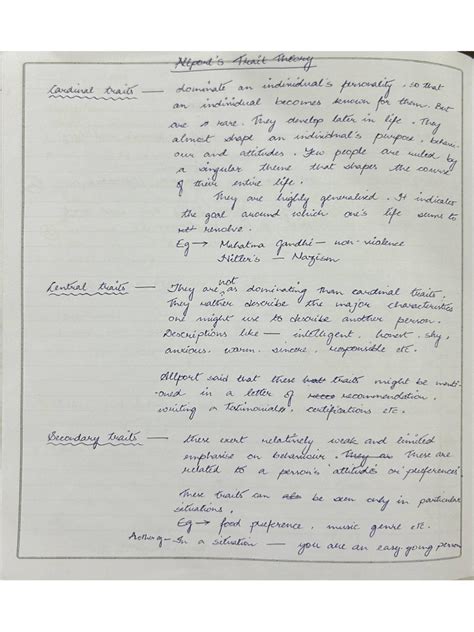 Allport's Trait Theory
Cardinal traits — dominate an individual's personality, so that
an individual becomes known for them. But
are rare. They develop later in life. They
almost shape an individual's purpose, behavi-
our and attitudes. Few people are ruled by
a singular theme that shapes the course
of their entire life.
They are highly generalised. It indicates
the goal around which one's life seems to
revolve.
Eg → Mahatma Gandhi — non-violence
Hitler's — Nazism
Central traits — They are not as dominating than cardinal traits.
They rather describe the major characteristics
one might use to describe another person.
Descriptions like — intelligent, honest, shy,
anxious, warm, sincere, responsible etc.
Allport said that these traits might be menti-
oned in a letter of recommendation,
writing or Testimonials, certifications etc.
Secondary traits — these exert relatively weak and limited
emphasise on behaviour. These are
related to a person's 'attitudes' or 'preferences'
These traits can be seen only in particular
situations.
Eg → food preference, music genre etc.
In a situation — you are an easy going person